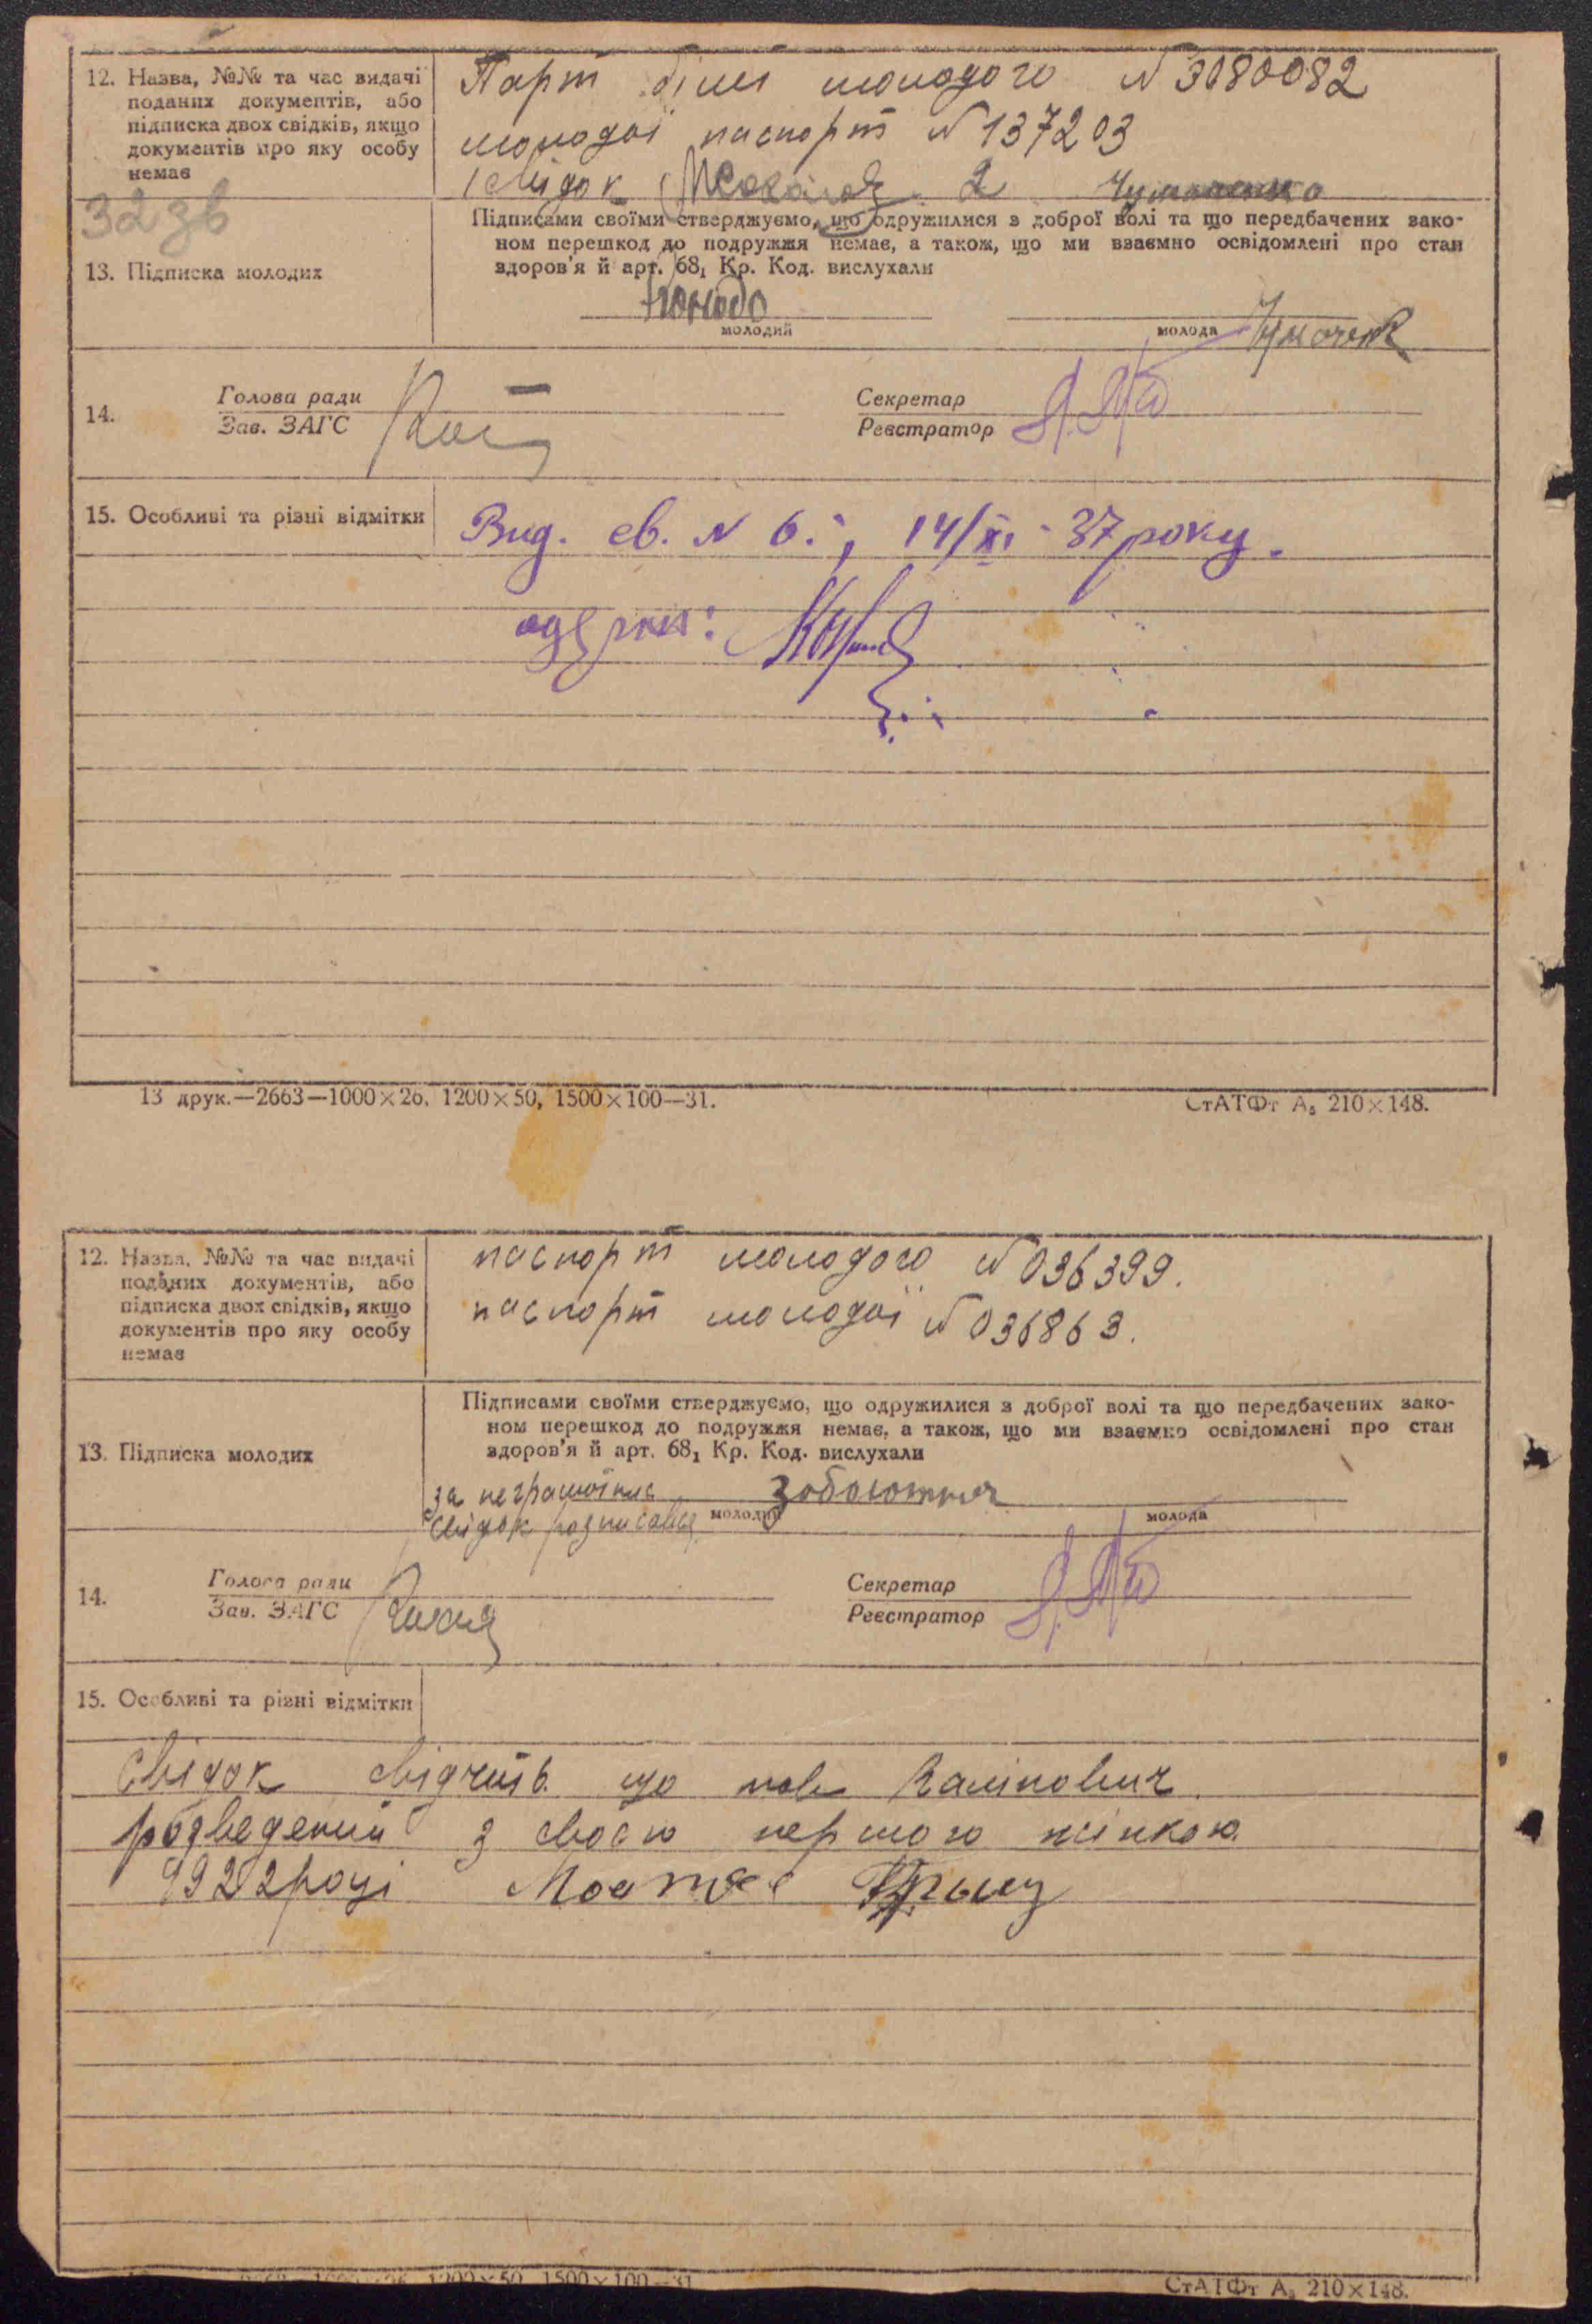 12. Назва, №№ та час видачі
поданих документів, або
підписка двох свідків, якщо
документів про яку особу
немає
Парт білет молодого N 3080082
молодої паспорт N 137203
1 свідок 2
32 зв
13. Підписка молодих
Підписами своїми стверджуємо, що одружилися з доброї волі та що передбачених зако-
ном перешкод до подружжя немає, а також, що ми взаємно освідомлені про стан
здоров'я й арт. 68₁ Кр. Код. вислухали
молодий
молода
14.
Голова ради
Зав. ЗАГС
Секретар
Реєстратор
15. Особливі та різні відмітки
Вид. св. N 6., 14/XI - 37 року.
13 друк.—2663—1000×26. 1200×50, 1500×100—31.
СтАТФт А₅ 210×148.
12. Назва, №№ та час видачі
поданих документів, або
підписка двох свідків, якщо
документів про яку особу
немає
паспорт молодого N 036399.
паспорт молодої N 036863.
13. Підписка молодих
Підписами своїми стверджуємо, що одружилися з доброї волі та що передбачених зако-
ном перешкод до подружжя немає, а також, що ми взаємно освідомлені про стан
здоров'я й арт. 68₁ Кр. Код. вислухали
за
свідок
молодий
молода
14.
Голова ради
Зав. ЗАГС
Секретар
Реєстратор
15. Особливі та різні відмітки
Свідок свідчить що Калінович
розведений з своєю першою жінкою
1922 році
1200×50 1500×100—31
СтАТФт А₅ 210×148.